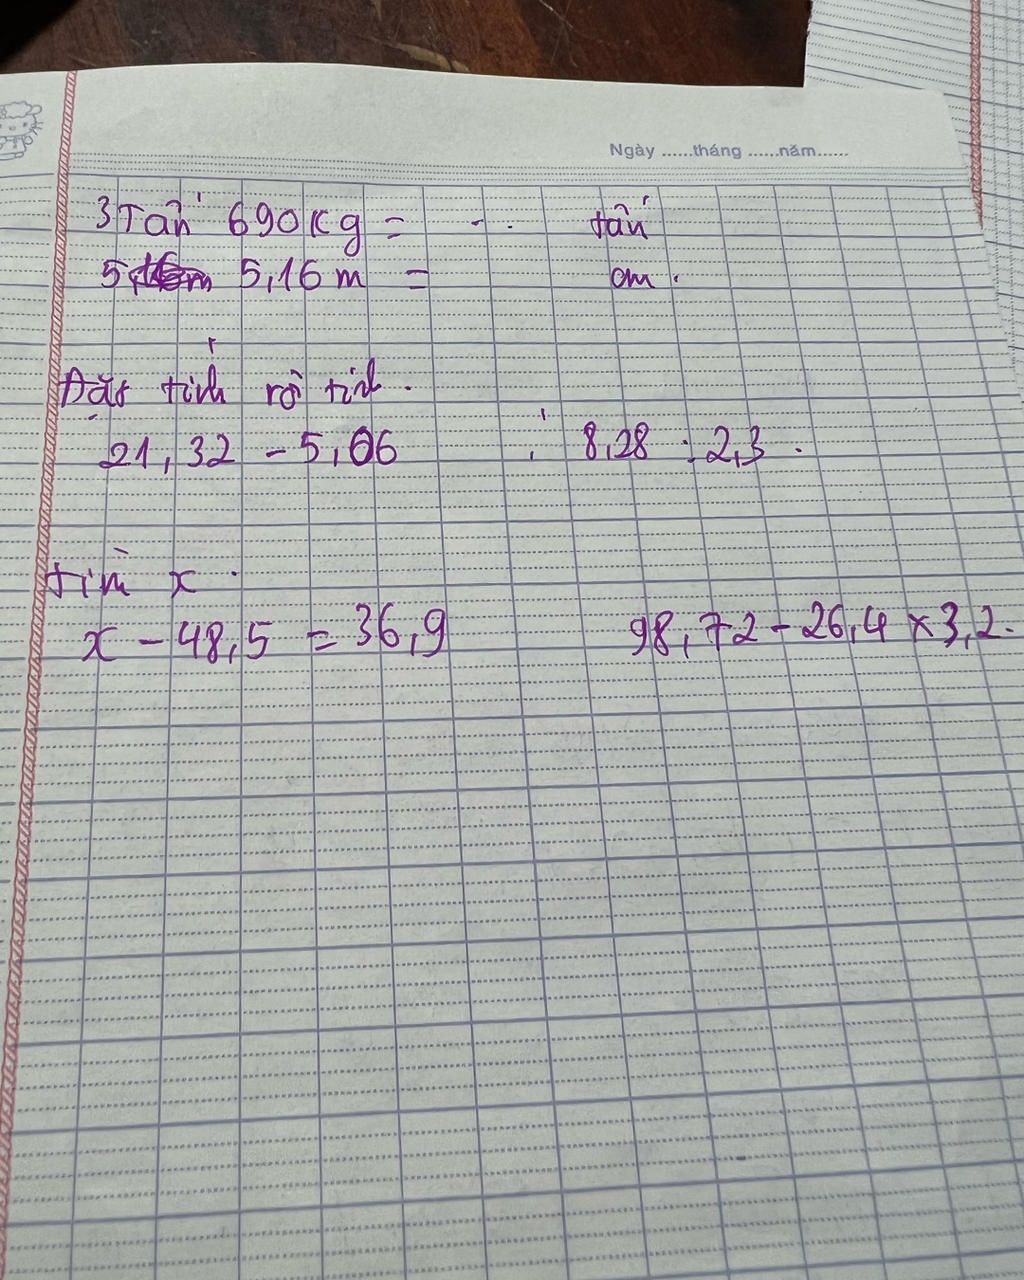 Ngày ......tháng ......năm......
3 Tấn 690 Kg = . . tấn
5 5,16 m = cm.
Đặt tính rồi tính.
21,32 - 5,06 ; 8,28 : 2,3.
tìm x.
x - 48,5 = 36,9 98,72 - 26,4 x 3,2.